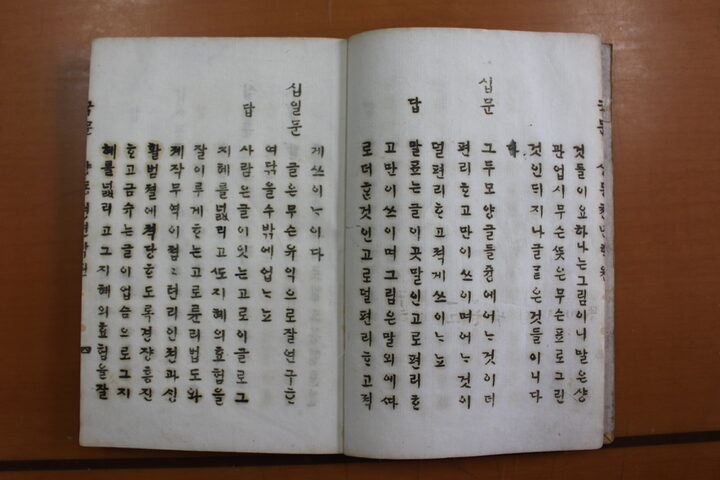 것들이요하나는그림이니말은샹
관업시무슨뜻은무슨표로그린
것인듸지나글ᄀᆞᆮ은것들이니다
십문 그두모양글들즁에어ᄂᆞ것이더
편리ᄒᆞ고만이쓰이며어ᄂᆞ것이
덜편리ᄒᆞ고적게쓰이ᄂᆞ뇨
답 말표는글이곳말인고로편리ᄒᆞ
고만이쓰이며그림은말외에ᄯᅡ
로더ᄒᆞᆫ것인고로덜편리ᄒᆞ고적
게쓰이ᄂᆞ이다
십일문 글은무슨유익으로잘연구ᄒᆞ
여닦을수밖에업ᄂᆞ뇨
답 사람은글이잇는고로이글로그
지혜를넓리고ᄯᅩ지혜의효험을
잘이루게ᄒᆞ는고로륜리법도와
제작무역이
적당ᄒᆞ도록
ᄒᆞ고금슈는글이업슴으로그지
혜를넓리고그지혜의효험을잘
국문
四